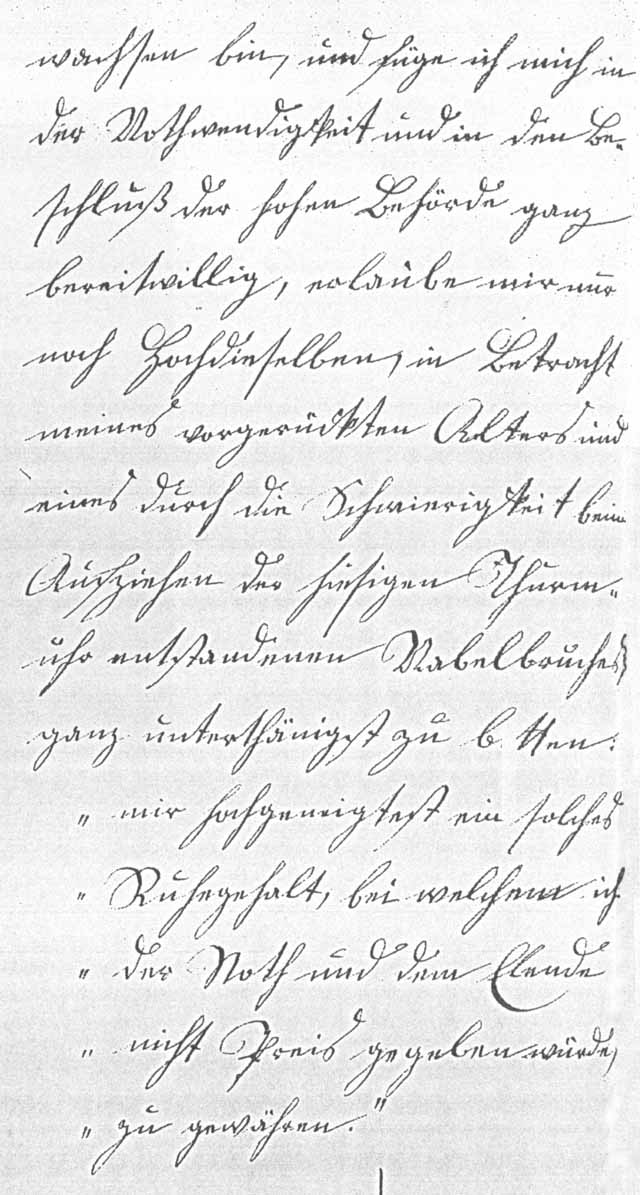 wachsen bin, und füge ich mich in
der Nothwendigkeit und in den Be-
schluß der hohen Behörde ganz
bereitwillig, erlaube mir nur
noch Hochdieselben, in Betracht
meines vorgerückten Alters und
eines durch die Schwierigkeit beim
Aufziehen der hiesigen Thurm-
uhr entstandenen Nabelbruches
ganz unterthänigst zu bitten:
" mir hochgeneigtest ein solches
" Ruhegehalt, bei welchem ich
" der Noth und dem Elende
" nicht Preis gegeben würde,
" zu gewähren."